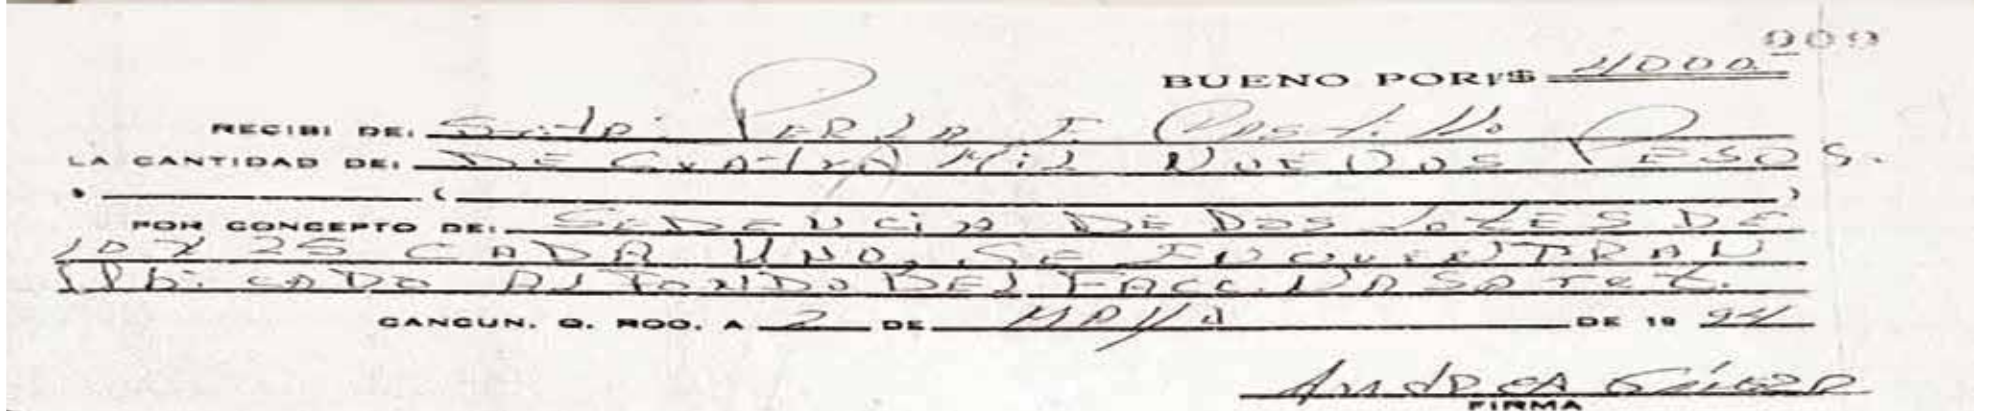 909
BUENO POR: $ 4000.
RECIBI DE: PERLA J. Castillo P
LA CANTIDAD DE: DE CUATRO Mil NUEVOS PESOS.
POR CONCEPTO DE: SEDENCIA DE DOS LOTES DE
10 X 25 CADA UNO, SE INCUENTRAN
UbicADO Al FONDO DEl FACC.
CANCUN, Q. ROO. A 2 DE MAYO DE 19 94
ANDREA
FIRMA